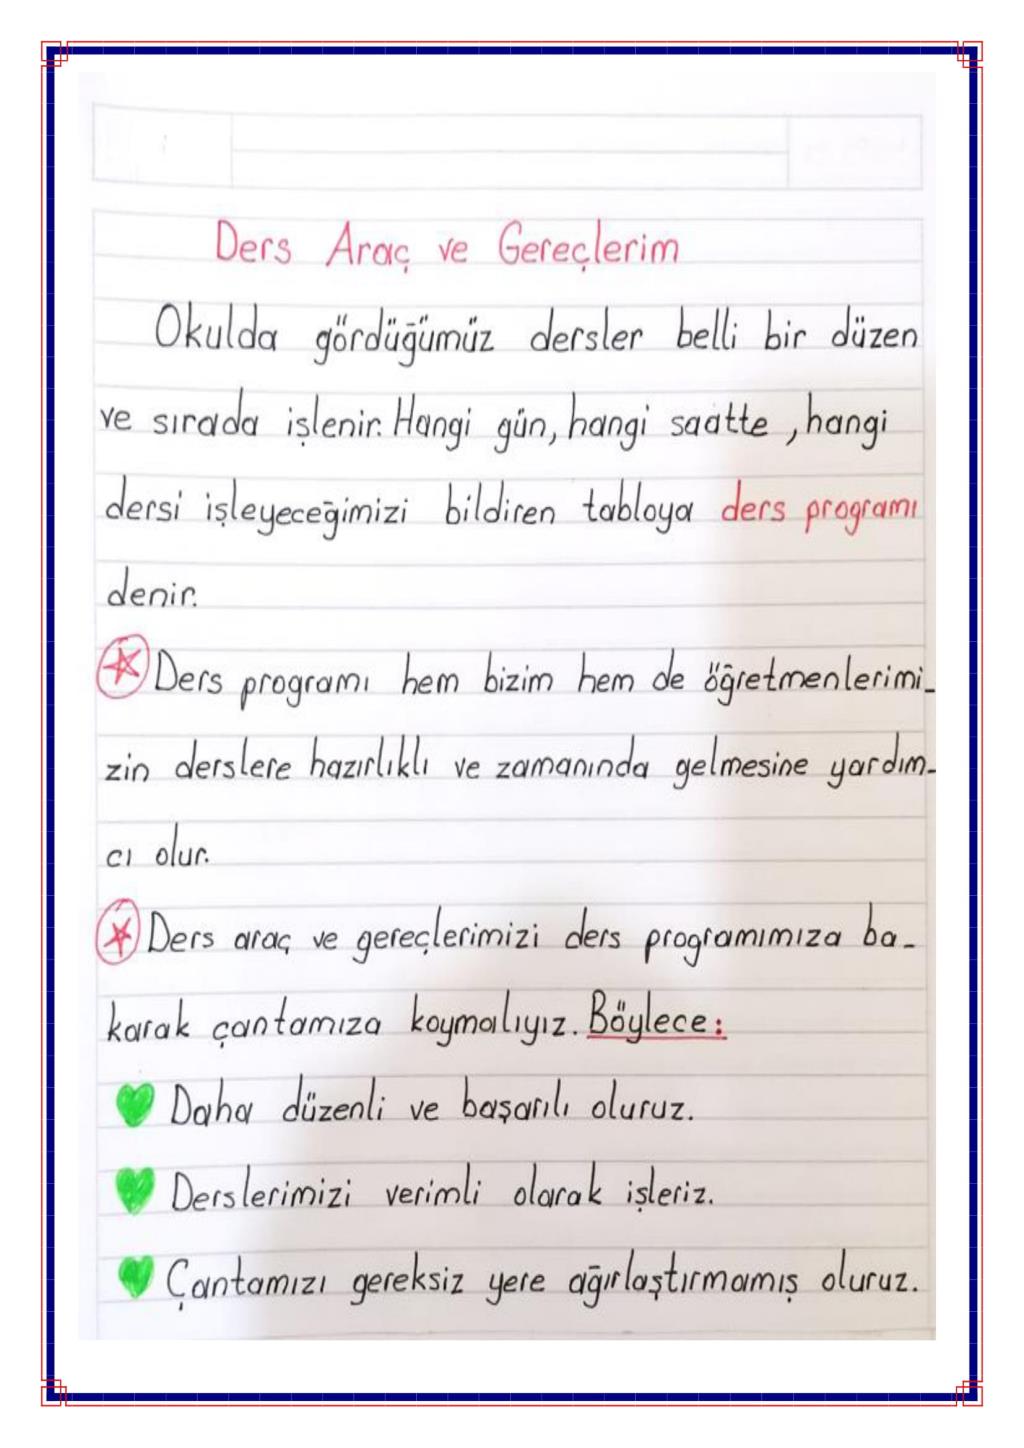 Ders Araç ve Gereçlerim
Okulda gördüğümüz dersler belli bir düzen
ve sırada işlenir. Hangi gün, hangi saatte, hangi
dersi işleyeceğimizi bildiren tabloya ders programı
denir.
Ders programı hem bizim hem de öğretmenlerimi-
zin derslere hazırlıklı ve zamanında gelmesine yardım-
cı olur.
Ders araç ve gereçlerimizi ders programımıza ba-
karak çantamıza koymalıyız. Böylece:
Daha düzenli ve başarılı oluruz.
Derslerimizi verimli olarak işleriz.
Çantamızı gereksiz yere ağırlaştırmamış oluruz.